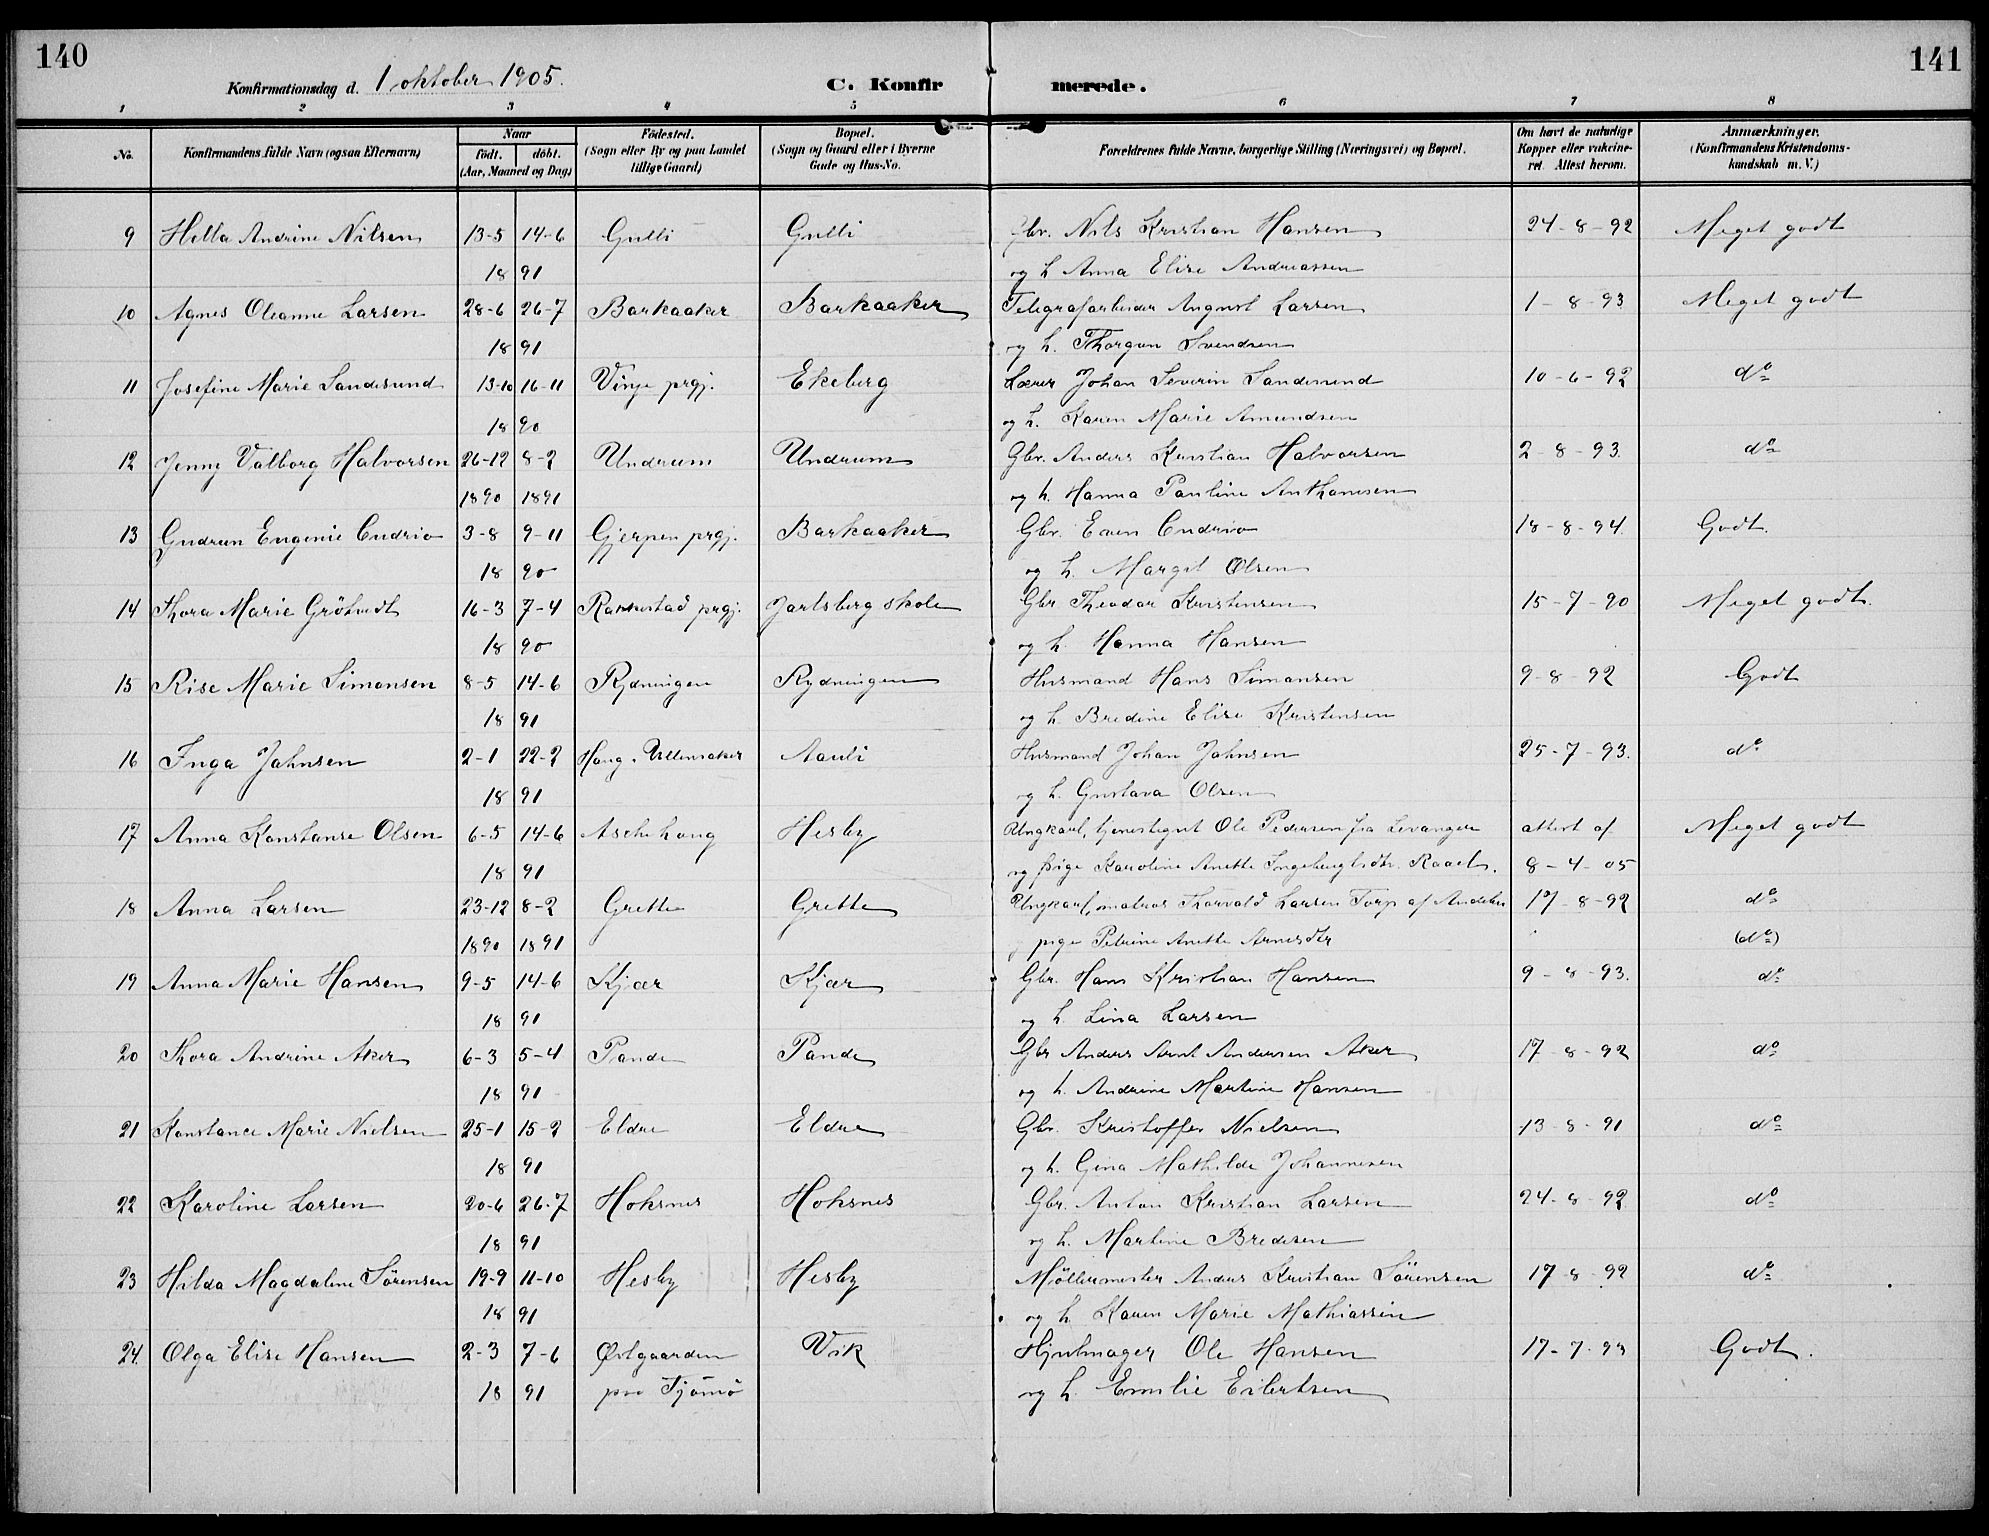 140
141
Konfirmationsdag d. 1 oktober 1905.
C. Konfirmerede.
1 2 3 4 5 6 7 8
No.
Konfirmandens fulde Navn (ogsaa Efternavn)
Naar
født. døbt.
(Aar, Maaned og Dag)
Fødested.
(Sogn eller By og paa Landet
tillige Gaard)
Bopæl.
(Sogn og Gaard eller i Byerne
Gade og Hus-No.
Forældrenes fulde Navne, borgerlige Stilling (Næringsvei) og Bopæl.
Om havt de naturlige
Kopper eller vakcine-
ret. Attest herom.
Anmærkninger.
(Konfirmandens Kristendoms-
kundskab m. V.)
9 Hella Andrine Nilsen 13-5 14-6 Gulli Gulli Gbr. Nils Kristian Hansen 24-8-92 Meget godt
18 91 og h. Anna Elise Andreassen
10 Agnes Oleanne Larsen 28-6 26-7 Barkaaker Barkaaker Telegrafarbeider August Larsen 1-8-93 Meget godt
18 91 og h. Thorgun Svendsen
11 Josefine Marie Sandesund 13-10 16-11 Vinje prgj. Ekeberg Lærer Johan Severin Sandesund 10-6-92 do
18 90 og h. Karen Marie Amundsen
12 Jenny Valborg Halvorsen 26-12 8-2 Undrum Undrum Gbr. Anders Kristian Halvorsen 2-8-93. do
1890 1891 og h. Hanna Pauline Anthonisen
13 Gudrun Eugenie 3-8 9-11 Gjerpen prgj. Barkaaker Gbr. Even 18-8-94. Godt.
18 90 og h. Margit Olsen
14 Thora Marie Grötvedt 16-3 7-4 Rakkestad prgj. Jarlsberg skole Gbr Theodor Kristensen 15-7-90 Meget godt.
18 90 og h. Hanna Hansen
15 Rise Marie Simonsen 8-5 14-6 Rydningen Rydningen Husmand Hans Simonsen 9-8-92 Godt
18 91 og h. Bredine Elise Kristensen
16 Inga Jahnsen 2-1 22-2 Haug. Ullensaker Aauli Husmand Johan Jahnsen 25-7-93. do
18 91 og h. Gustava Olsen
17 Anna Konstanse Olsen 6-5 14-6 Aschehoug Hesby Ungkarl, tjenestegut Ole Pedersen fra Levanger attest af Meget godt
18 91 og pige Karoline Anette Ingebrigtsdtr. Raael. 8-4-05
18 Anna Larsen 23-12 8-2 Grette Grette Ungkarl, matros Thorvald Larsen Torp af Andebu 17-8-92 do
1890 1891 pige Petrine Anette Arnesdtr (do)
19 Anna Marie Hansen 9-5 14-6 Kjær Kjær Gbr. Hans Kristian Hansen 9-8-93. do
18 91 og h. Lina Larsen
20 Thora Andrine Aker 6-3 5-4 Pande Pande Gbr Anders Arnt Andersen Aker 17-8-92 do
18 91 og h. Andrine Martine Hansen
21 Konstance Marie Nielsen 25-1 15-2 Eldre Eldre Gbr. Kristoffer Nielsen 13-8-91 do
18 91 og h. Gina Mathilde Johannesen
22 Karoline Larsen 20-6 26-7 Hoksnes Hoksnes Gbr. Anton Kristian Larsen 24-8-92 do
18 91 og h. Martine Bredesen
23 Hilda Magdalene Sörensen 19-9 11-10 Hesby Hesby Møllermester Anders Kristian Sörensen 17-8-92 do
18 91 og h. Karen Marie Mathiassen
24. Olga Elise Hansen 2-3 7-6 Østgaarden Vik Hjulmager Ole Hansen 17-7-93 Godt.
18 91 paa Tjömö og h. Emilie Eilertsen